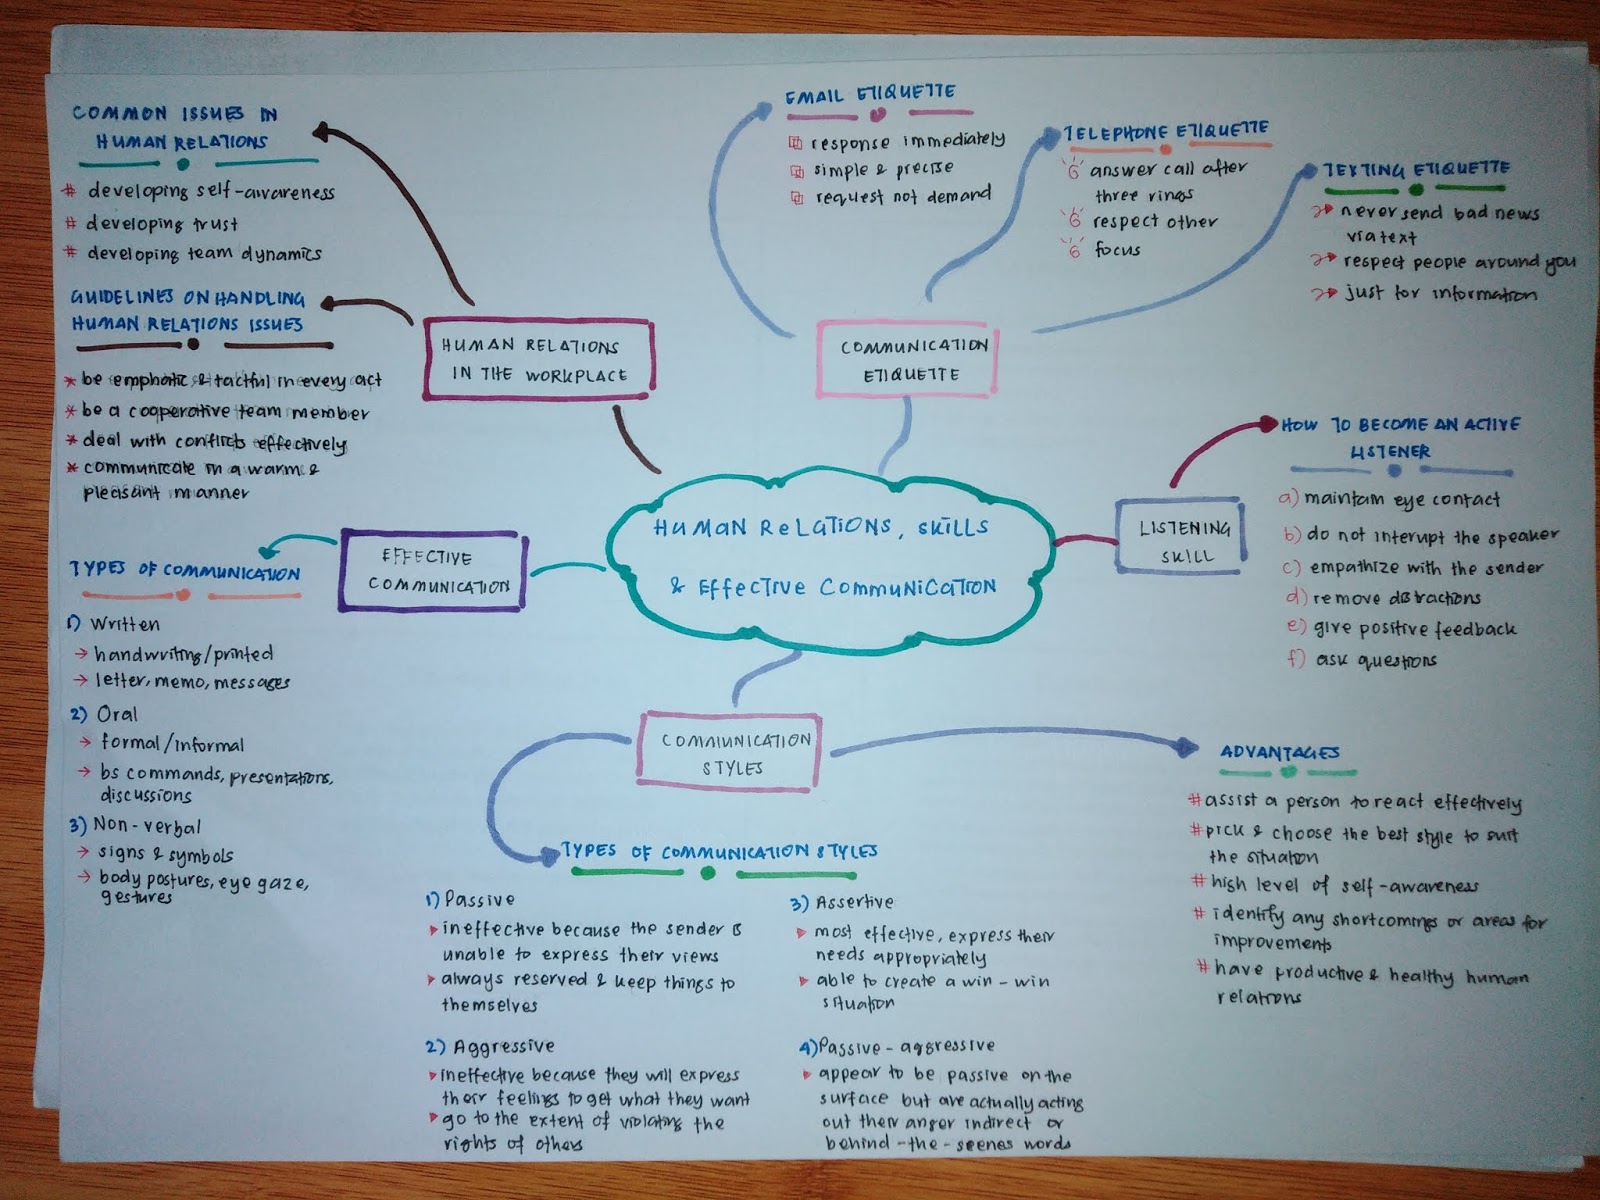 COMMON ISSUES IN
HUMAN RELATIONS
# developing self-awareness
# developing trust
# developing team dynamics
GUIDELINES ON HANDLING
HUMAN RELATIONS ISSUES
* be emphatic & tactful in every act
* be a cooperative team member
* deal with conflicts effectively
* communicate in a warm &
pleasant manner
HUMAN RELATIONS
IN THE WORKPLACE
EMAIL ETIQUETTE
response immediately
simple & precise
request not demand
TELEPHONE ETIQUETTE
answer call after
three rings
respect other
focus
TEXTING ETIQUETTE
never send bad news
via text
respect people around you
just for information
COMMUNICATION
ETIQUETTE
HOW TO BECOME AN ACTIVE
LISTENER
a) maintain eye contact
b) do not interupt the speaker
c) empathize with the sender
d) remove distractions
e) give positive feedback
f) ask questions
LISTENING
SKILL
HUMAN RELATIONS, SKILLS
& EFFECTIVE COMMUNICATION
EFFECTIVE
COMMUNICATION
TYPES OF COMMUNICATION
1) Written
→ handwriting/printed
→ letter, memo, messages
2) Oral
→ formal/informal
→ bs commands, presentations,
discussions
3) Non-verbal
→ signs & symbols
→ body postures, eye gaze,
gestures
COMMUNICATION
STYLES
TYPES OF COMMUNICATION STYLES
1) Passive
ineffective because the sender is
unable to express their views
always reserved & keep things to
themselves
2) Aggressive
ineffective because they will express
their feelings to get what they want
go to the extent of violating the
rights of others
3) Assertive
most effective, express their
needs appropriately
able to create a win-win
situation
4) Passive-aggressive
appear to be passive on the
surface but are actually acting
out their anger indirect or
behind-the-scenes words
ADVANTAGES
# assist a person to react effectively
# pick & choose the best style to suit
the situation
# high level of self-awareness
# identify any shortcomings or areas for
improvements
# have productive & healthy human
relations